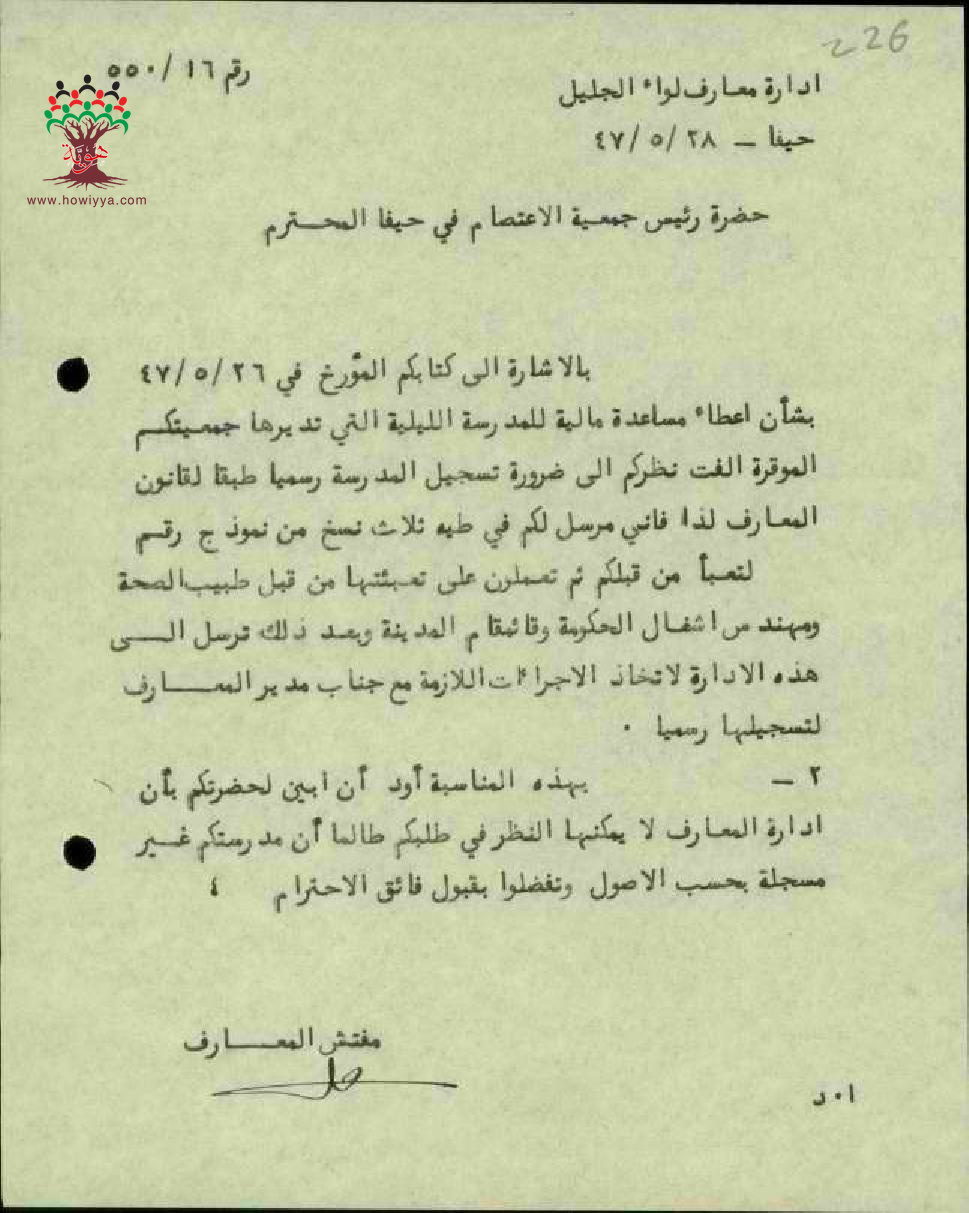 226
رقم ٥٥٠/١٦
ادارة معارف لواء الجليل
حيفا – ٤٧/٥/٢٨
هوية
www.howiyya.com
حضرة رئيس جمعية الاعتصام في حيفا المحترم
بالاشارة الى كتابكم المؤرخ في ٤٧/٥/٢٦
بشأن اعطاء مساعدة مالية للمدرسة الليلية التي تديرها جمعيتكم
الموقرة الفت نظركم الى ضرورة تسجيل المدرسة رسميا طبقا لقانون
المعارف لذا فاني مرسل لكم في طيه ثلاث نسخ من نموذج رقم
لتعبأ من قبلكم ثم تعملون على تعبئتها من قبل طبيب الصحة
ومهندس اشغال الحكومة وقائمقام المدينة وبعد ذلك ترسل الى
هذه الادارة لاتخاذ الاجراءات اللازمة مع جناب مدير المعارف
لتسجيلها رسميا ٠
٢ – بهذه المناسبة أود أن ابين لحضرتكم بأن
ادارة المعارف لا يمكنها النظر في طلبكم طالما أن مدرستكم غير
مسجلة بحسب الاصول وتفضلوا بقبول فائق الاحترام ٤
مفتش المعارف
ا٠د